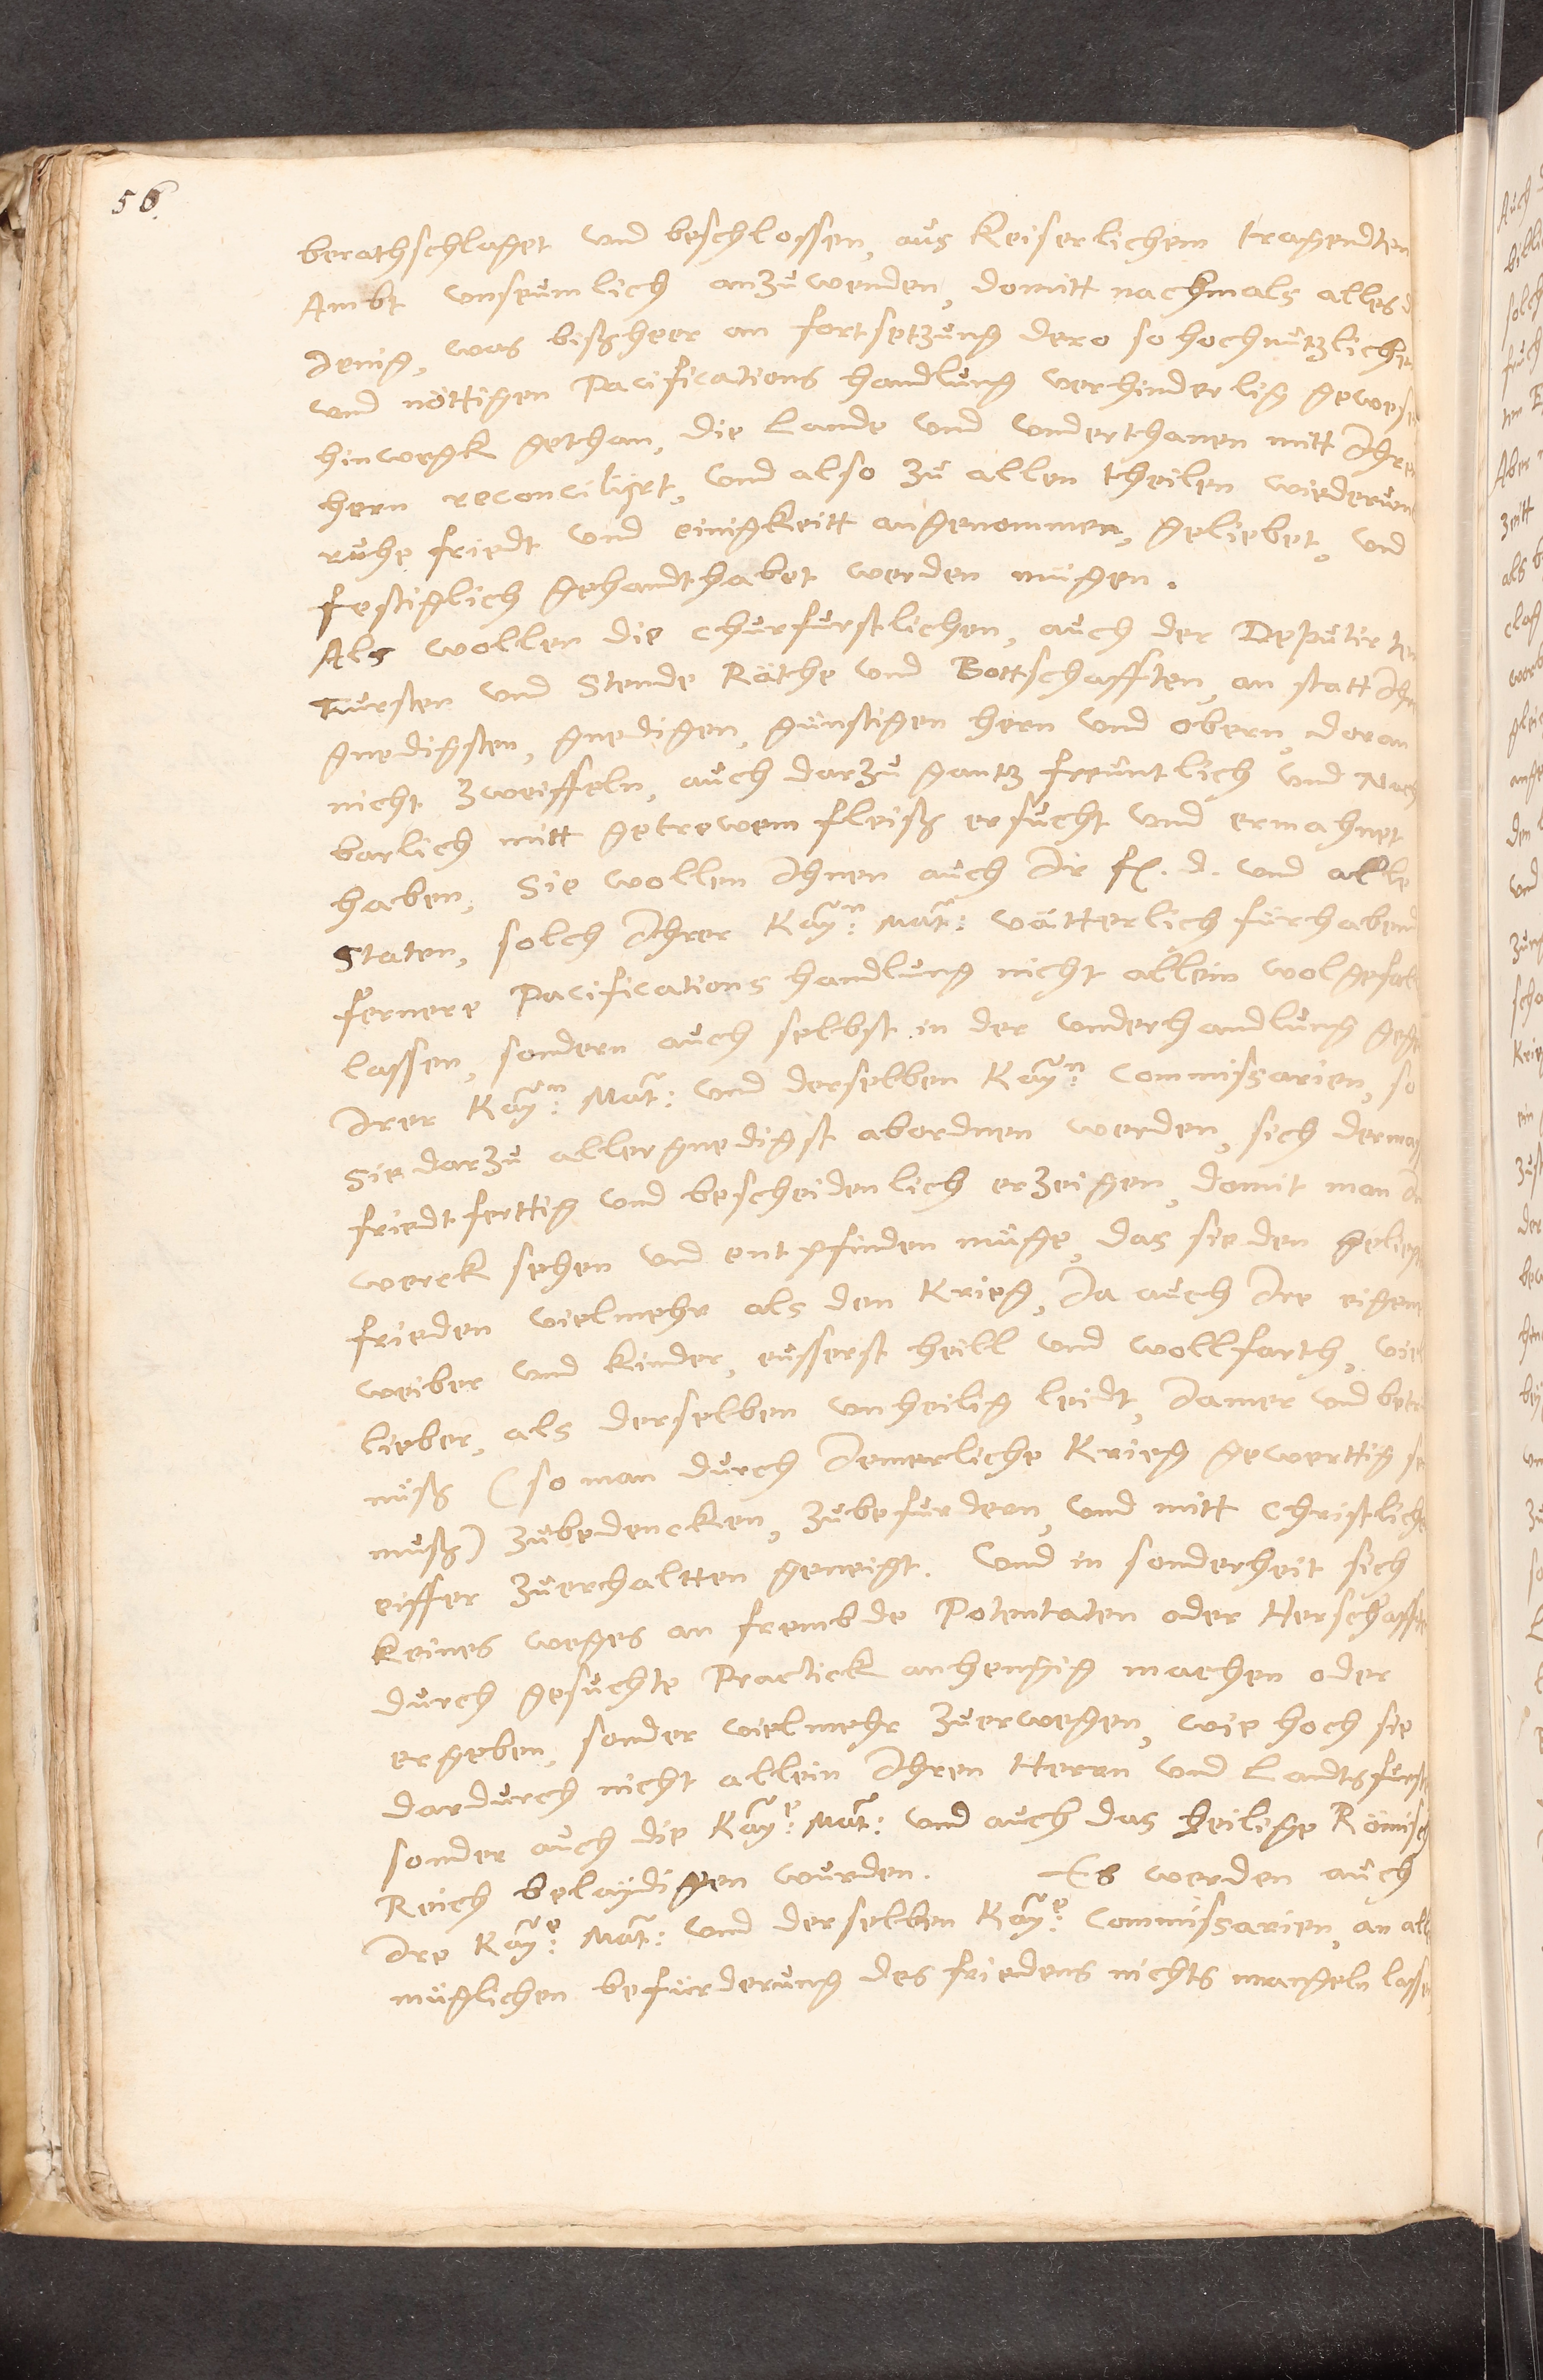 56.
berathschlaget und beschlossen, aus Keiserlichem tragendten
Ambt unseumlich anzuwenden, domitt nachmals alles d
Jenig, was bißheer an fortsetzung dero so hochnützlichen
und nöttigen Pacifications handlung verhinderlig gewese
hinwegk gethan, die Lande und underthanen mitt Ihren
hern reconciliirt, und also zu allen theilen wiederumb
ruhe friedt und einigkeitt angenommen, geliebet, und
festiglich gehandthabet werden mügen.
Als wollen die Churfurstlichen, auch der Deputirten
Fursten und Stende Räthe und Bottschafften, an statt Ihr
gnedigsten, gnedigen, günstigen hern und obern, daran
nicht zweiffeln, auch darzu gantz freuntlich und Nach
barlich mitt getrewem fleiß ersucht und ermahnet
haben, Sie wollen Ihnen auch Ir f. d. und alle
Staten, solch Ihrer Kayn: Mat: vätterlich fürhabend
fernere Pacifications handlung nicht allein wolgefall
lassen, sondern auch selbst in der underhandlung gege
Irer Kayn: Mat: und derselben Kayn: Commissarien, so
Sie darzu allergnedigst abordnen werden, sich dermass
friedtferttig und bescheidenlich erzeigen, domit man Im
werck sehen und entpfinden müge, das sie den geliept
frieden vielmehr als den Krieg, Ja auch Ire eigene
weiber und kinder, eusserst heill und wollfarth, viel
lieber, als derselben unheilig leidt, Jamer und betrü
nuß (so man durch Jemerliche Krieg gewerttig se
muß) zubedencken, zubefurdern, und mitt Christliche
eiffer zuerhaltten geneigt. Und in sonderheit sich
keines weges an frembde Potentaten oder Herschafften
durch gesuchte Practick anhengig machen oder
ergeben, sonder vielmehr zuerwegen, wie hoch sie
dardurch nicht allein Ihren Herrn und Landtsfurst
sonder auch die Kaye: Mat: und auch das heilige Römisch
Reich belaydigen wurden. Es werden auch
Ire Kaye: Mat: und derselben Kaye: Commissarien, an all
müglichen befürderung des friedens nichts mangeln lassen